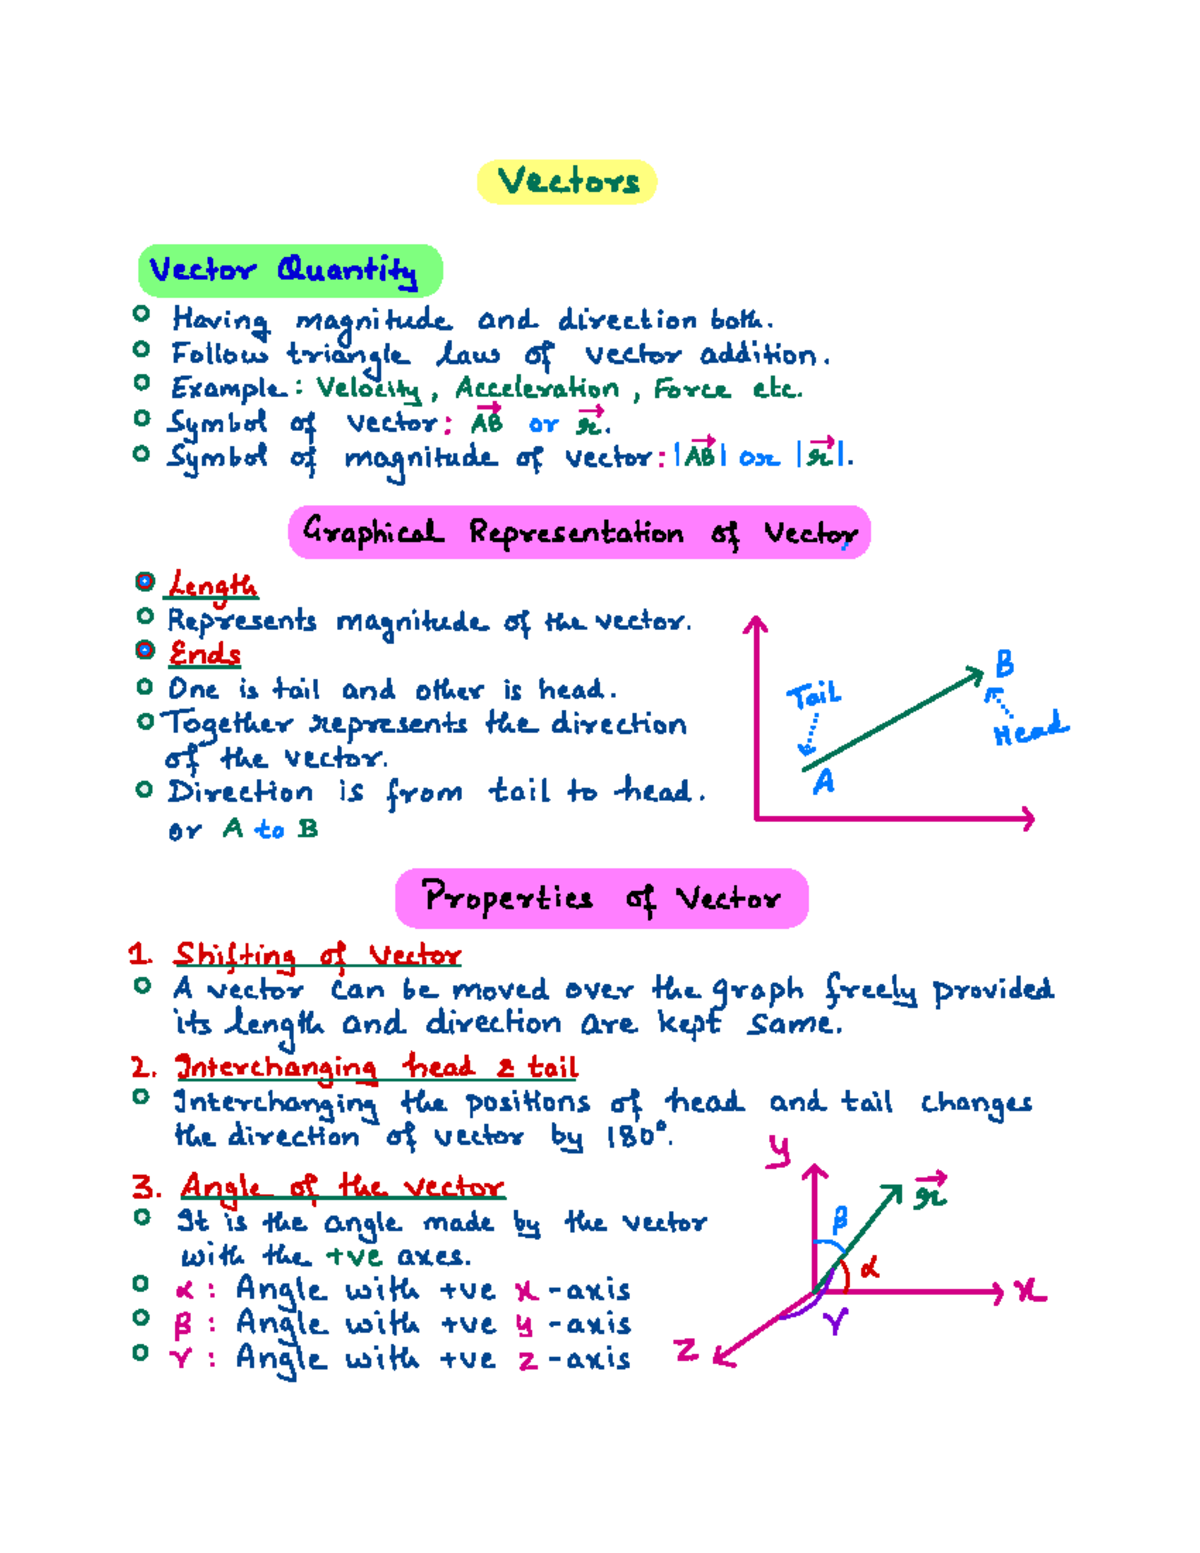 Vectors
Vector Quantity
Having magnitude and direction both.
Follow triangle law of vector addition.
Example: Velocity, Acceleration, Force etc.
Symbol of vector: A⃗B⃗ or r⃗.
Symbol of magnitude of vector: |A⃗B⃗| or |r⃗|.
Graphical Representation of Vector
Length
Represents magnitude of the vector.
Ends
One is tail and other is head.
Together represents the direction
of the vector.
Direction is from tail to head.
or A to B
Tail
A
B
Head
Properties of Vector
1. Shifting of Vector
A vector can be moved over the graph freely provided
its length and direction are kept same.
2. Interchanging head & tail
Interchanging the positions of head and tail changes
the direction of vector by 180°.
3. Angle of the vector
It is the angle made by the vector
with the +ve axes.
α : Angle with +ve x-axis
β : Angle with +ve y-axis
γ : Angle with +ve z-axis
y
r⃗
β
α
x
γ
z